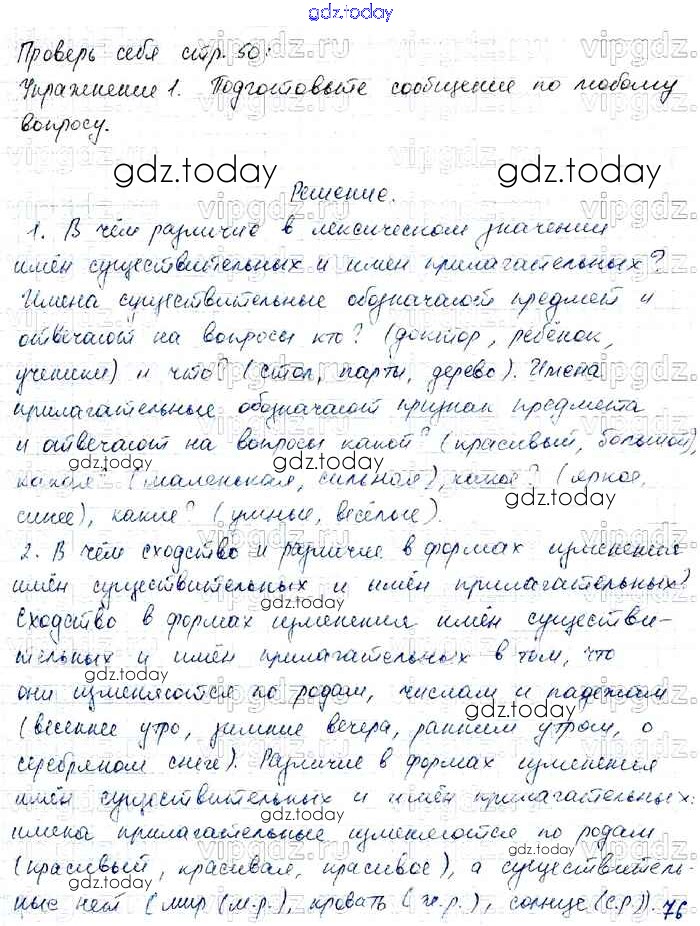 gdz.today
Проверь себя стр. 50:
Упражнение 1. Подготовьте сообщение по любому
вопросу.
gdz.today gdz.today
Решение.
1. В чём различие в лексическом значении
имён существительных и имён прилагательных?
Имена существительные обозначают предмет и
отвечают на вопросы кто? (доктор, ребёнок,
ученики) и что? (стол, парты, дерево). Имена
прилагательные обозначают признак предмета
и отвечают на вопросы какой? (красивый, большой),
gdz.today gdz.today
какая? (маленькая, сильная), какое? (яркое,
gdz.today
синее), какие? (умные, весёлые).
2. В чём сходство и различие в формах изменения
имён существительных и имён прилагательных?
gdz.today
Сходство в формах изменения имён существи-
тельных и имён прилагательных в том, что
gdz.today
они изменяются по родам, числам и падежам
gdz.today
(весеннее утро, зимние вечера, ранним утром, о
серебряном снеге). Различие в формах изменения
имён существительных и имён прилагательных:
имена прилагательные изменяются по родам
(красивый, красивая, красивое), а существитель-
gdz.today gdz.today
ные нет (мир (м.р.), кровать (ж.р.), солнце (с.р.)). 76